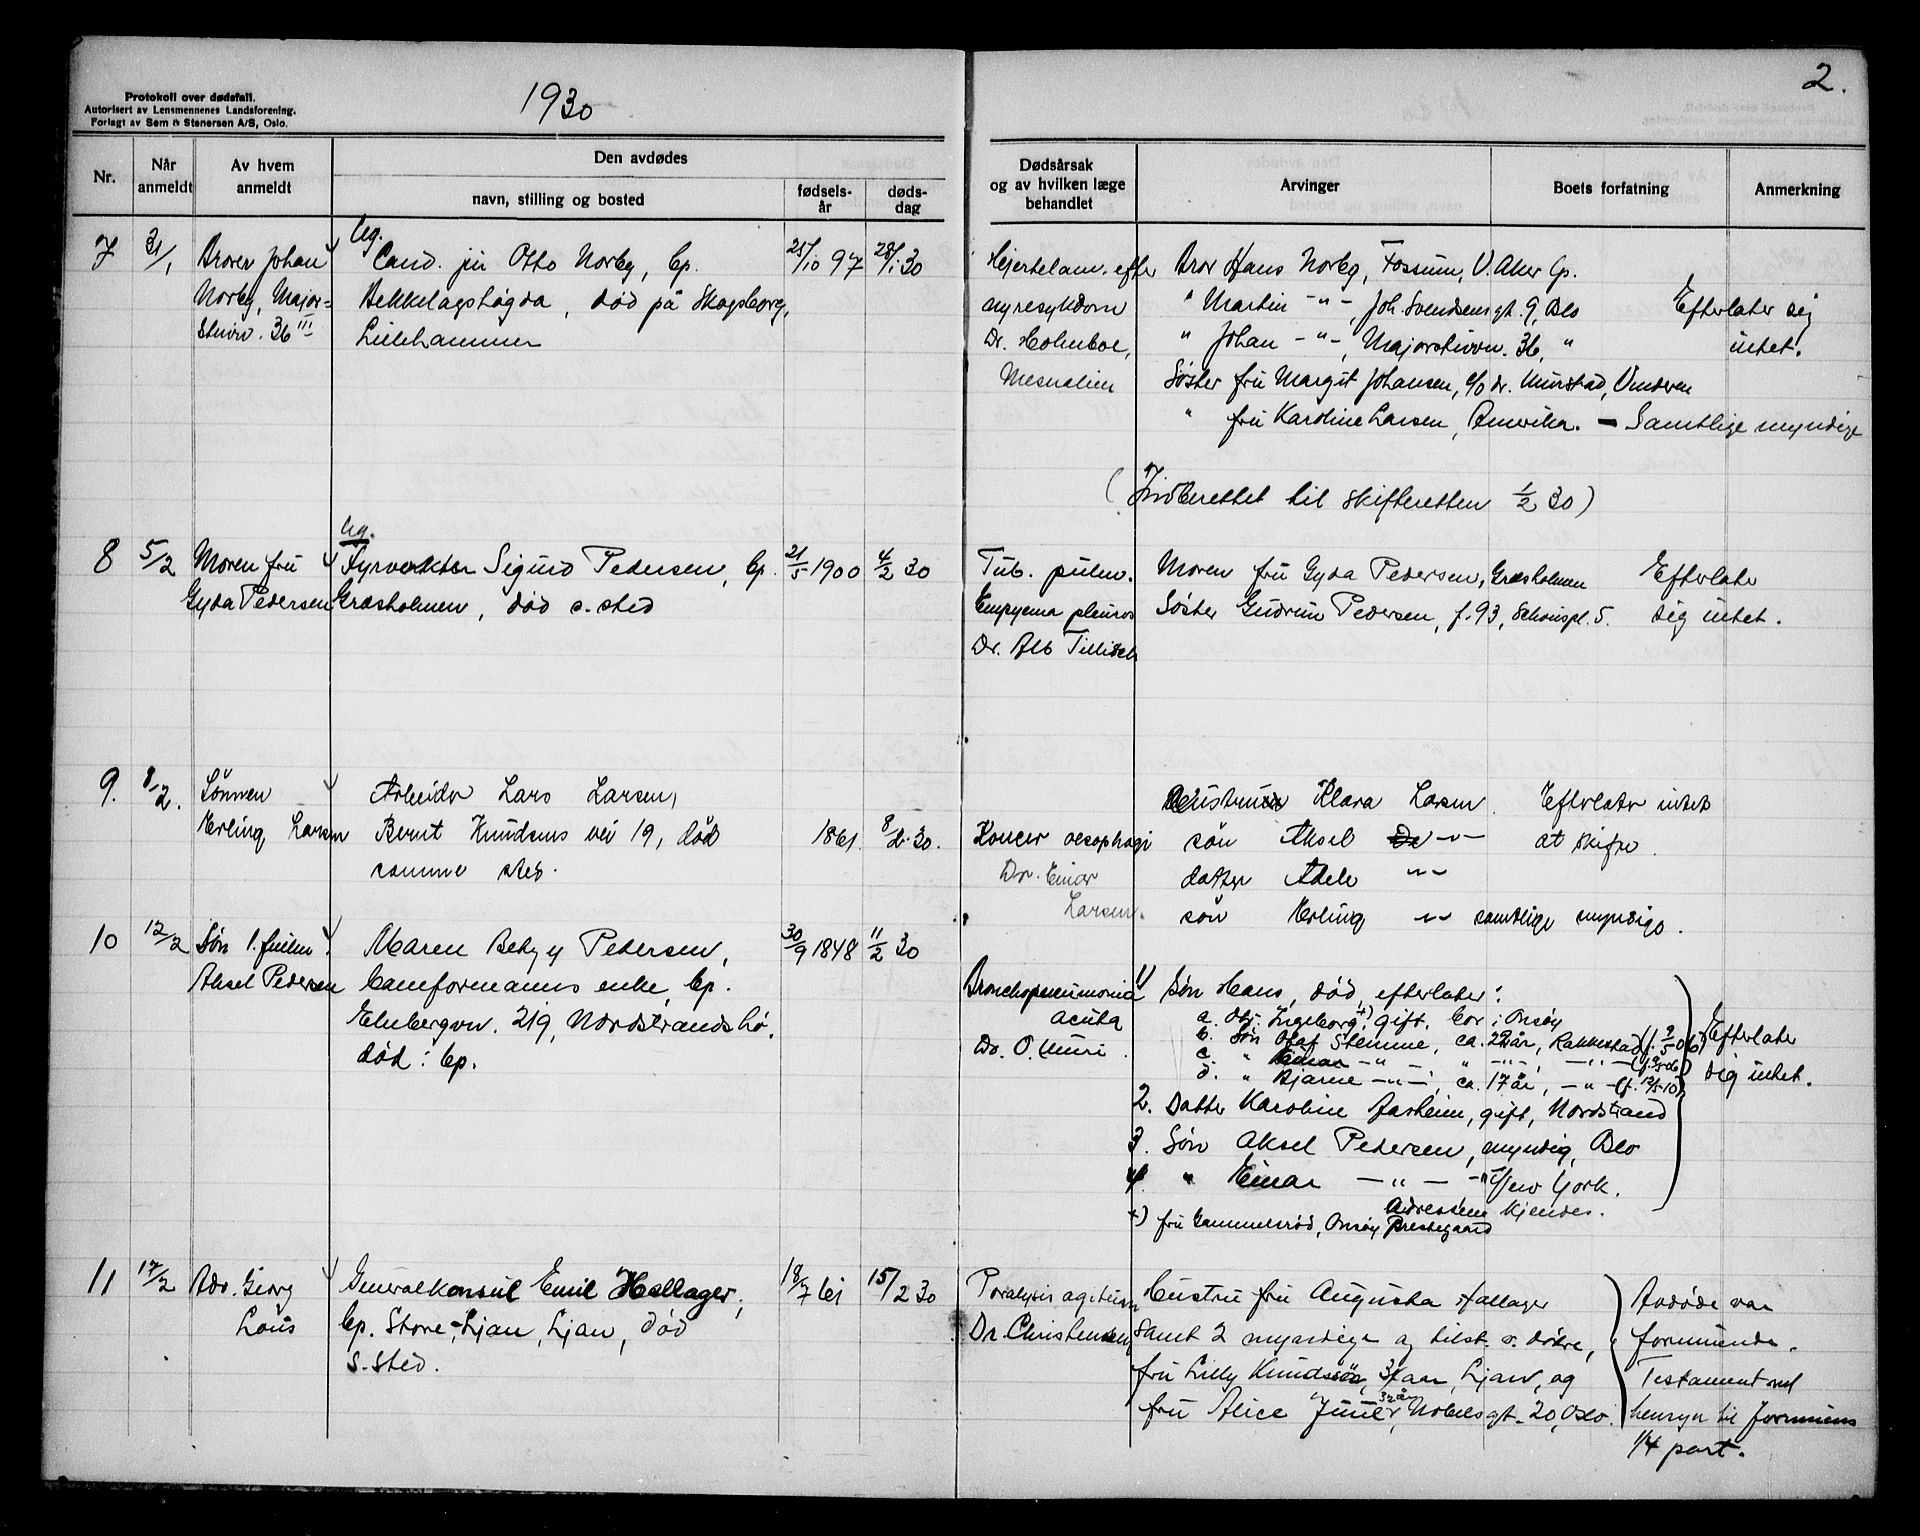 Protokoll over dødsfall.
Autorisert av Lensmennenes Landsforening.
Forlagt av Sem & Stenersen A/S, Oslo.
1930
2.
Nr.
Når anmeldt
Av hvem anmeldt
Den avdødes
navn, stilling og bosted
fødsels-år
døds-dag
Dødsårsak og av hvilken læge behandlet
Arvinger
Boets forfatning
Anmerkning
7
31/1
Broren Johan
Norby, Major-
stuvn. 36 III
Ug.
Cand. jur Otto Norby, Op.
Bekkelagshøgda, død på Skogsborg,
Lillehammer
25/10 97
28/1 30
Hjertelam. efter
nyresykdom
Dr. Holmboe,
Mesnalien
Bror Hans Norby, Fossum, V. Aker Op.
" Martin -"-, Joh. Svendsens gt. 9, Oslo
" Johan -"-, Majorstuvn. 36, "
Søster fru Margit Johansen, c/o dr. Munstad, Vinderen
" fru Karoline Larsen, Amerika. - Samtlige myndige
Efterlater sig
intet.
(Indberettet til skifteretten 1/2 30)
8
5/2
Moren fru
Gyda Pedersen
Ug.
Fyrvokter Sigurd Pedersen, Op.
Græsholmen, død s. sted
21/5 1900
4/2 30
Tub. pulm.
Empyema pleuros
Dr. Alb Tillisch
Moren fru Gyda Pedersen, Græsholmen
Søster Gudrun Pedersen, f. 93, Schouspl. 5.
Efterlater
sig intet.
9.
8/2.
Sønnen
Erling Larsen
Arbeider Lars Larsen,
Bernt Knudsens vei 19, død
samme sted.
1861.
8/2. 30.
Kancer oesophagi
Dr. Einar
Larsen.
Hustruen Klara Larsen
søn Aksel De -"-
datter Adele -"-
søn Erling -"- samtlige myndige.
Efterlater intet
at skifte.
10
12/2
Søn
Aksel Pedersen
Maren Betzy Pedersen,
Baneformanns enke, Op.
Ekebergvn. 219, Nordstrandshø.
død: Op.
30/9 1848
11/2 30
Bronchopneumonia
acuta
Dr. O. Munri
1) Søn Hans, død, efterlater:
a. dtr. Ingeborg,+) gift. bor i Onsøy
b. Søn Olaf Stemme, ca. 22 år, Rakkestad
c. " Einar -"-
d. " Bjarne -"-, ca. 17 år, -"- (f. 12/5-10)
2. Datter Karoline Aasheim, gift, Nordstrand
3. Søn Aksel Pedersen, myndig, Oslo
4. " Einar -"- -"- New York.
Adressene kjendes.
+) fru Gammelsrød, Onsøy Prestegaard
Efterlater
sig intet.
11
17/2
Adv. Georg
Lous
Generalkonsul Emil Hallager,
Op. Store-Ljan, Ljan, død
s. sted.
18/7 61
15/2 30
Paralysis agitans
Dr. Christensen
Hustru fru Augusta Hallager
samt 2 myndige og tilst. v. døtre,
fru Lilly Knudssön, aar, Ljan, og
fru Alice Juuer, 32 år Nobels gt. 20, Oslo.
Avdøde var
formuende.
Testament med
hensyn til formuens
1/4 part.